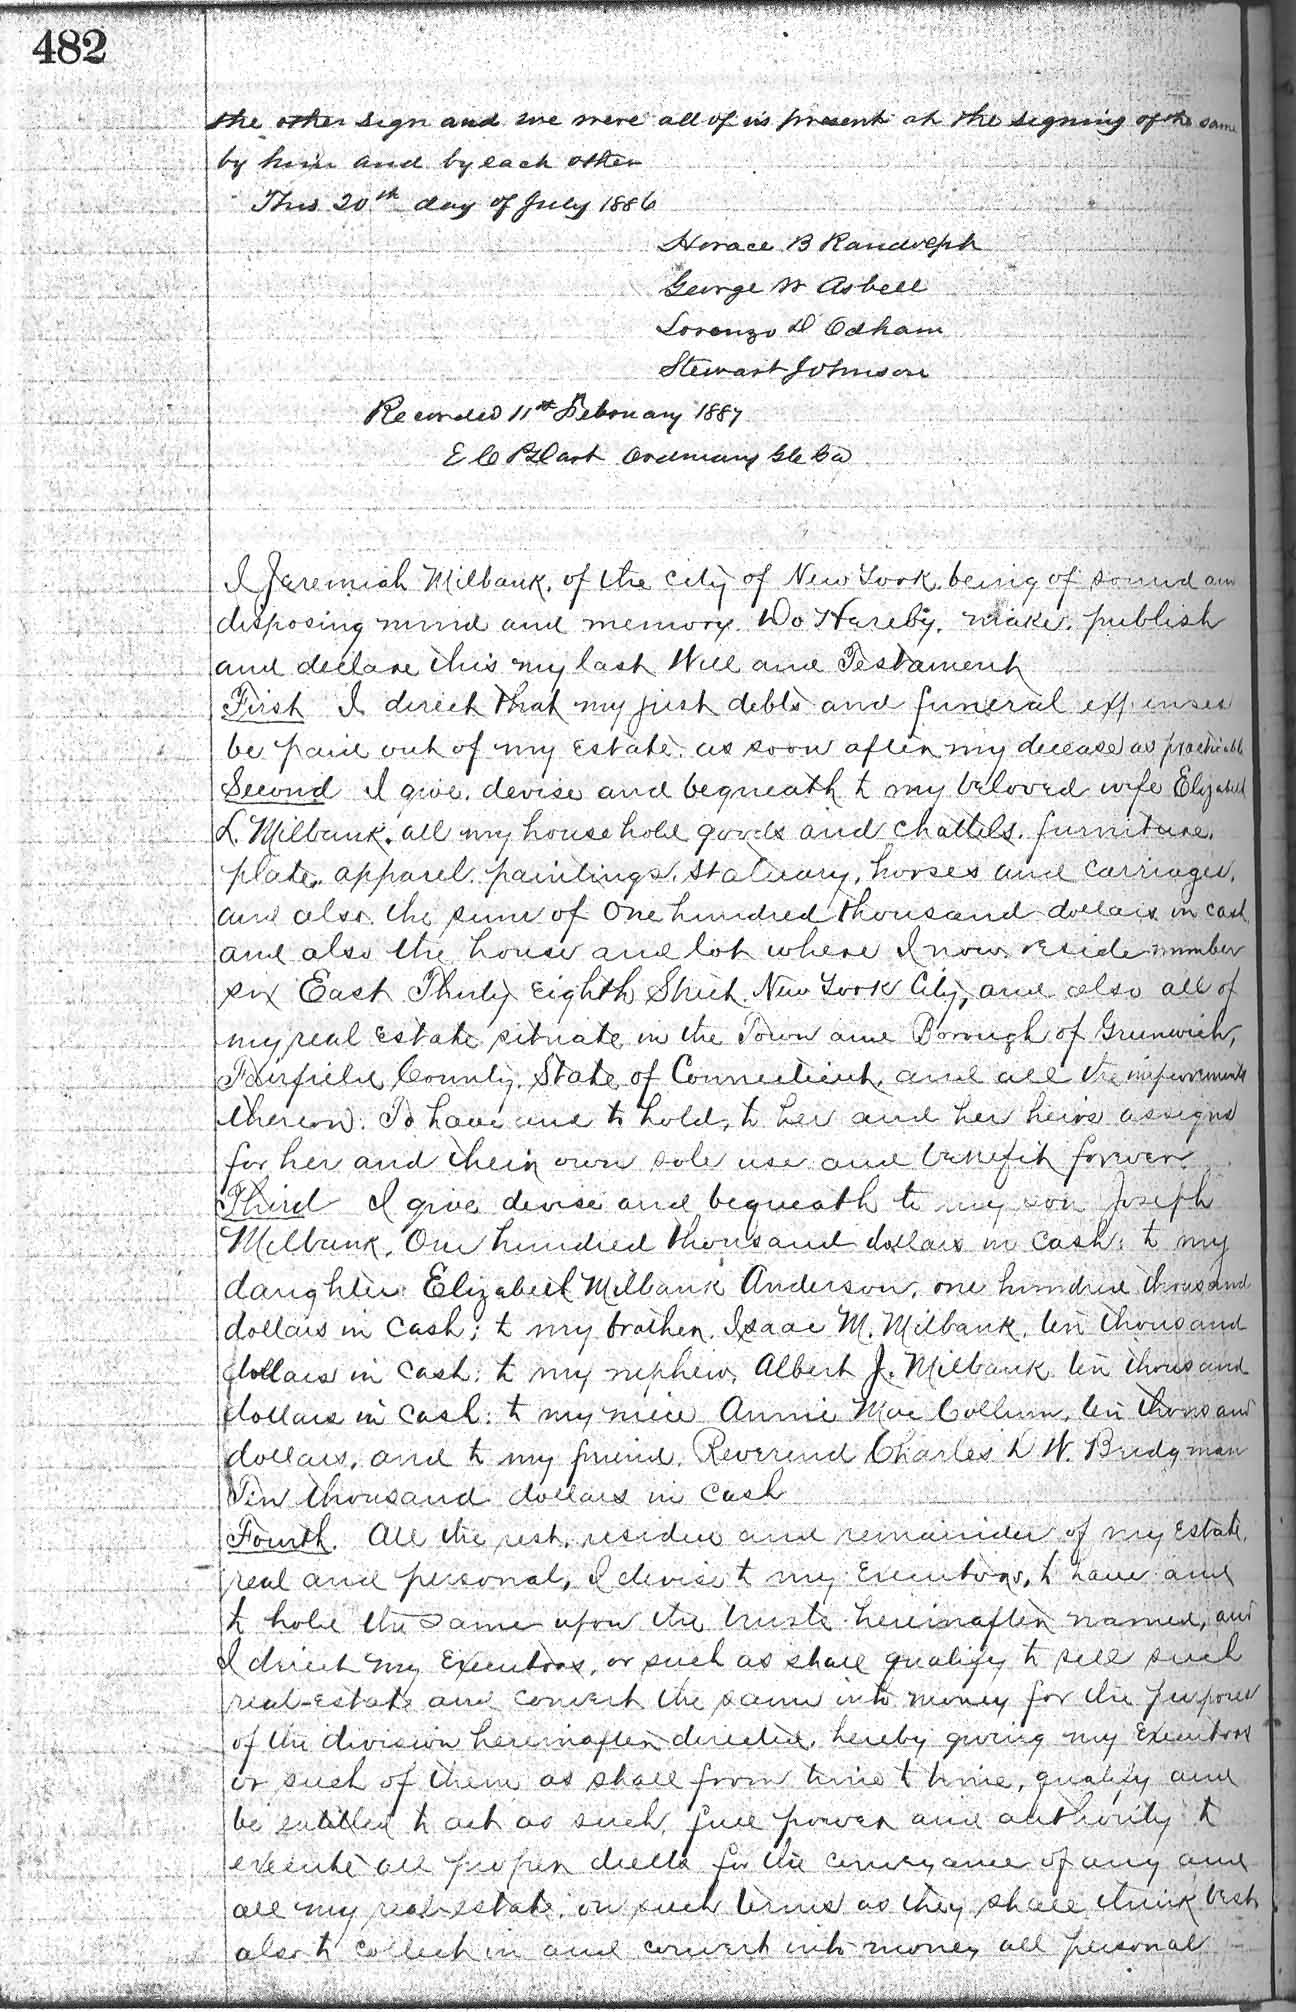 482
the other sign and we were all of us present at the signing of the same
by him and by each other
This 20th day of July 1886
Horace B Randolph
George W Asbell
Lorenzo D Odham
Stewart Johnson
Recorded 11th February 1887
Ordinary
I Jeremiah Milbank, of the city of New York, being of sound and
disposing mind and memory. Do Hereby, make, publish
and declare this my last Will and Testament
First I direct that my just debts and funeral expenses
be paid out of my Estate, as soon after my decease as practicable
Second I give, devise and bequeath to my beloved wife Elizabeth
L. Milbank, all my household goods and chattels, furniture,
plate, apparel, paintings, statuary, horses and carriages,
and also the sum of One hundred thousand dollars in cash
and also the house and lot where I now reside number
six East Thirty Eighth Street, New York City, and also all of
my real Estate situate in the Town and Borough of Greenwich,
Fairfield County, State of Connecticut, and all the improvements
thereon. To have and to hold, to her and her heirs assigns
for her and their own sole use and benefit forever.
Third I give devise and bequeath to my son Joseph
Milbank, One hundred thousand dollars in cash; to my
daughter Elizabeth Milbank Anderson, one hundred thousand
dollars in cash; to my brother, Isaac M. Milbank, ten thousand
dollars in cash; to my nephew, Albert J. Milbank ten thousand
dollars in cash; to my niece Annie Mac Collum, ten thousand
dollars, and to my friend, Reverend Charles D W. Bridgman
Ten thousand dollars in cash
Fourth. All the rest, residue and remainder of my Estate,
real and personal, I devise to my Executors, to have and
to hold the same upon the trusts hereinafter named, and
I direct my Executors, or such as shall qualify to sell such
real-Estate and convert the same into money for the purposes
of the division hereinafter directed, hereby giving my Executors
or such of them as shall from time to time, qualify and
be entitled to act as such, full power and authority to
execute all proper deeds for the conveyance of any and
all my real-estate, on such terms as they shall think best
also to collect in and convert into money all personal